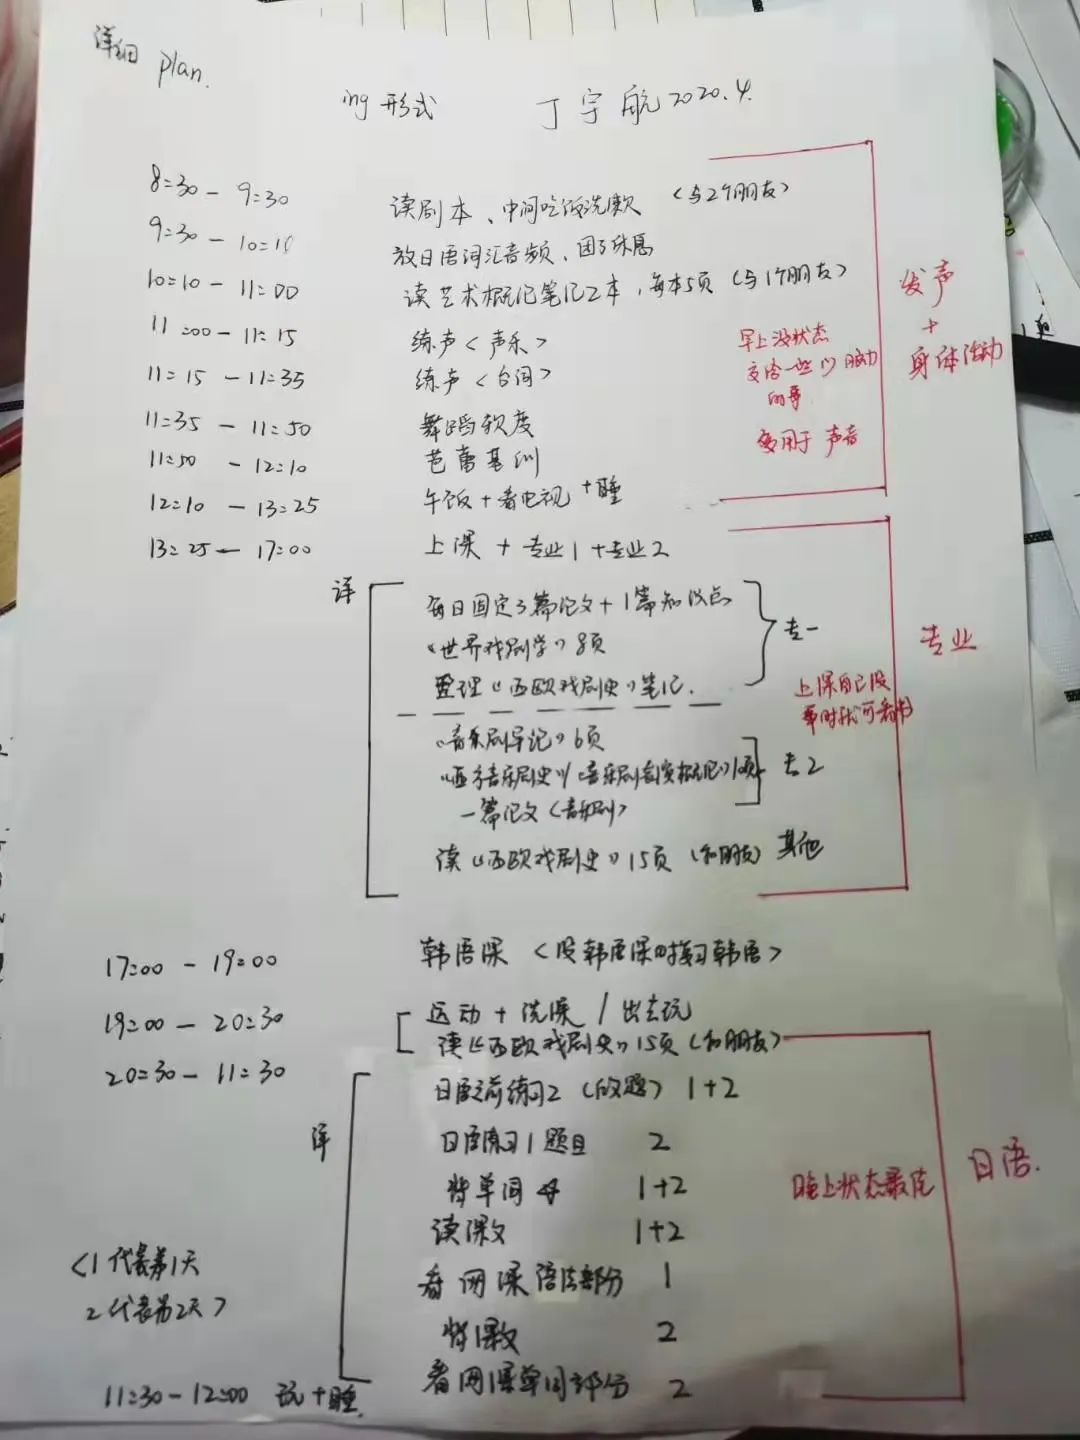 详细 plan.
ing 形式 丁宇航 2020.4.
8:30 - 9:30 读剧本、中间吃饭洗漱 (与2个朋友)
9:30 - 10:10 放日语词汇音频、困了休息
10:10 - 11:00 读艺术概论笔记2本，每本5页 (与1个朋友)
11:00 - 11:15 练声<声乐>
11:15 - 11:35 练声<台词>
11:35 - 11:50 舞蹈软度
11:50 - 12:10 芭蕾基训
12:10 - 13:25 午饭 + 看电视 + 睡
早上没状态
安排一些 脑力
的事
要用于 声音
发声
+
身体活动
13:25 - 17:00 上课 + 专业1 + 专业2
详
每日固定3篇论文 + 1篇知识点
《世界戏剧学》8页
整理《西欧戏剧史》笔记.
专一
《音乐剧导论》6页
《西方音乐剧史》/《音乐剧表演概论》10页
一篇论文 (音乐剧)
专2
读《西欧戏剧史》15页 (和朋友) 其他
上课自己没
事时就可看书
专业
17:00 - 19:00 韩语课 <没韩语课时复习韩语>
19:00 - 20:30 运动 + 洗澡 / 出去玩
读《西欧戏剧史》15页 (和朋友)
20:30 - 11:30 日语之前练习2 (改题) 1+2
详
日语练习1题目 2
背单词 1+2
读课文 1+2
看网课语法部分 1
背课文 2
看网课单词部分 2
晚上状态最佳
日语.
<1 代表第1天
2 代表第2天>
11:30 - 12:00 玩 + 睡.